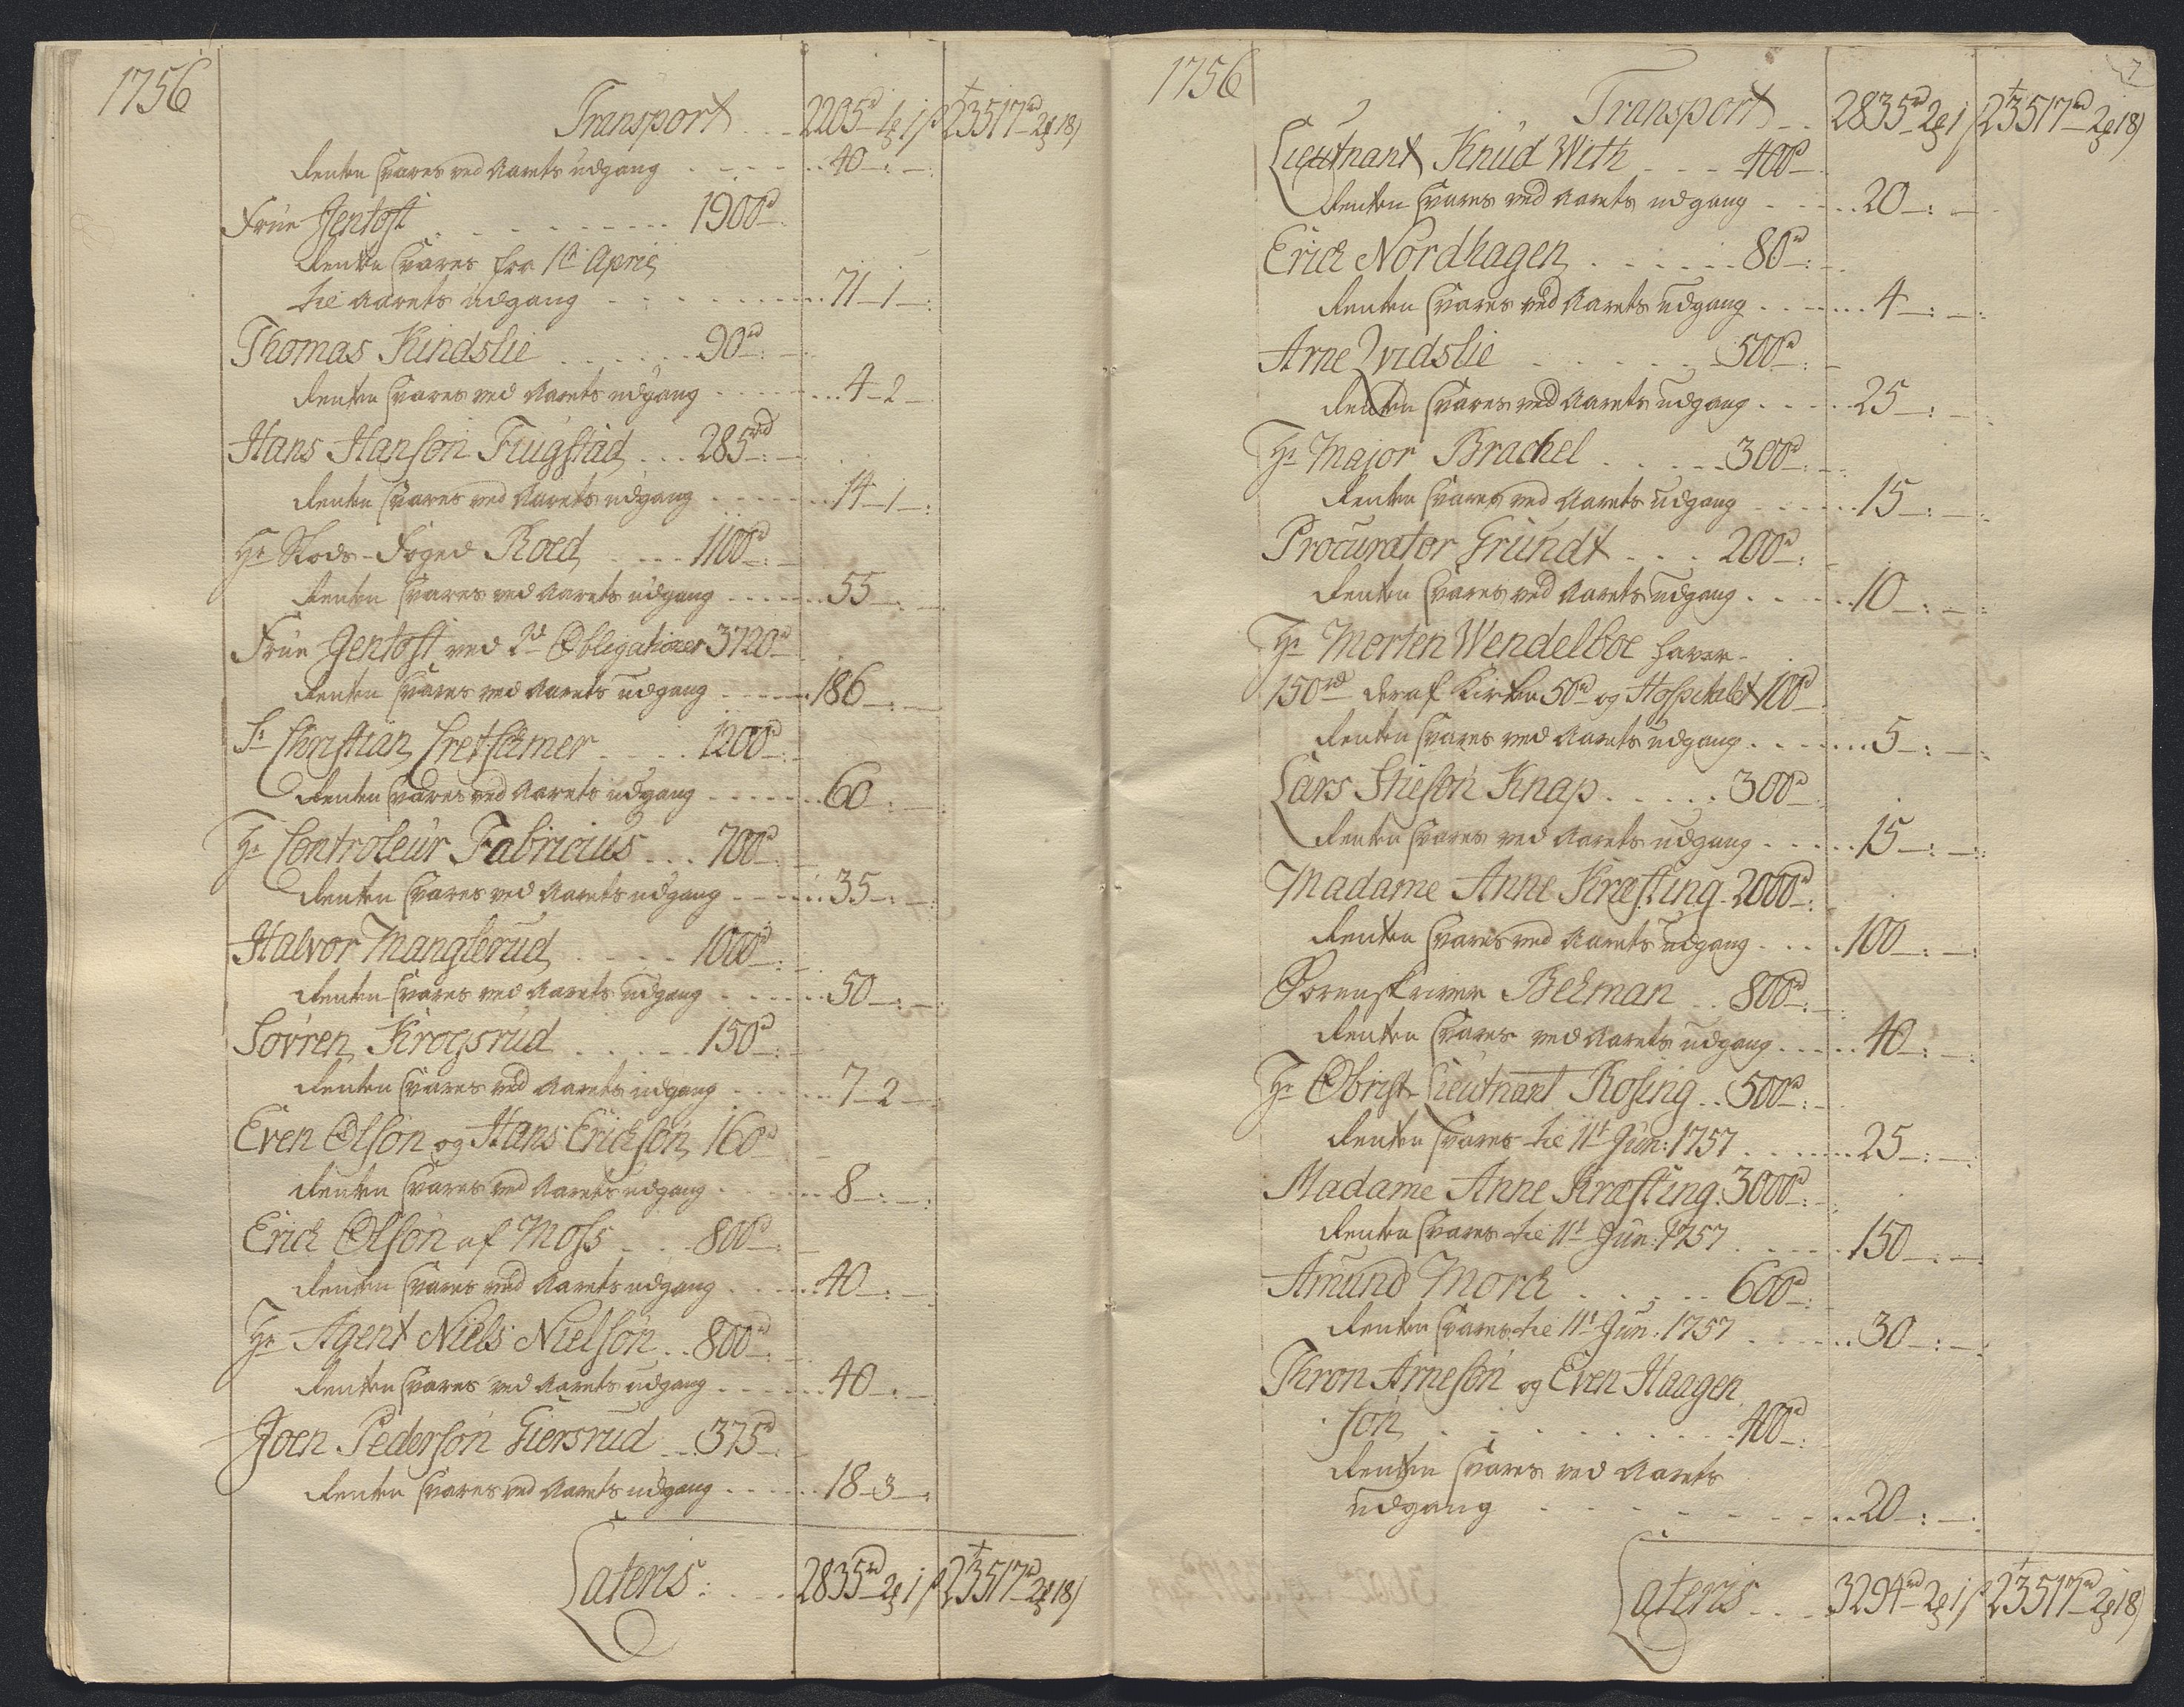 1756
Transport . . . 2205rd 1 ƶ 1 ß 23517rd 2 ƶ 18 ß
Renten svares ved Aarets udgang . . . . . 40 – : –
Frue Gentoft . . . . . . . . 1900rd
Renten svares fra 1te April
til Aarets udgang . . . . . . . . . 71 – 1 – :
Thomas Kindslie . . . . . . 90rd : –
Renten svares ved Aarets udgang . . . . . . 4 – 2 –
Hans Hansøn Fiugstad . . . 285rd : –
Renten svares ved Aarets udgang . . . . . . 14 – 1 – :
Hr Stods-Foged Roed . . . . 1100rd : –
Renten svares ved Aarets udgang . . . . . . 55 – : –
Frue Gentoft ved 2de Obligationer 3720rd
Renten svares ved Aarets udgang . . . . . 186 – : –
Sr Christian Cretschmer . . . . 1200rd : –
Renten svares ved Aarets udgang . . . . . . 60 – : –
Hr Controleur Fabricius . . . 700rd : –
Renten svares ved Aarets udgang . . . . . . 35 – : –
Halvor Manglerud . . . . . 1000rd : –
Renten svares ved Aarets udgang . . . . . . 50 – : –
Sovren Krogsrud . . . . . 150rd : –
Renten svares ved Aarets udgang . . . . . . 7 – 2 –
Even Olson og Hans Erickson 160rd
Renten svares ved Aarets udgang . . . . . . 8 – : – :
Erick Olson af Moss . . . 800rd : –
Renten svares ved Aarets udgang . . . . . 40 – : –
Hr Agent Niels Nielson . . 800rd : –
Renten svares ved Aarets udgang . . . . . . 40 – : –
Joen Pederson Giersrud . . . 375rd : –
Renten svares ved Aarets udgang . . . . . . 18 – 3 – :
Lateris : . . . 2835rd 2 ƶ 1 ß 23517rd 2 ƶ 18 ß
1756
7
Transport . . 2835rd 2 ƶ 1 ß 23517rd 2 ƶ 18 ß
Lieutnant Knud With . . . 400rd
Renten svares ved Aarets udgang . . . . . 20 – : –
Erick Nordhagen . . . . . . 80rd : –
Renten svares ved Aarets udgang . . . . . . 4 – : – :
Arne Qvidslie . . . . . . 500rd : –
Renten svares ved Aarets udgang . . . . . 25 – : –
Hr Major Brachel . . . . . 300rd : –
Renten svares ved Aarets udgang . . . . . . 15 – : – :
Procurator Grundt . . . 200rd :
Renten svares ved Aarets udgang . . . . . 10 – : – :
Hr Morten Wendelboe haver
150rd deraf Kirken 50rd og Hospitalet 100rd
Renten svares ved Aarets udgang . . . . . . 5 – : – :
Lars Stieson Knap . . . . . 300rd
Renten svares ved Aarets udgang . . . . . 15 – : – :
Madame Anne Kræfting . 2000rd :
Renten svares ved Aarets udgang . . . . 100 – : – :
Sorenskriver Bekman . . 800rd : –
Renten svares ved Aarets udgang . . . . . 40 – : –
Hr Obrist-Lieutnant Rosing . . 500rd : –
Renten svares til 11t Jun: 1757 . . . . . . 25 – : –
Madame Anne Kræfting . 3000rd : –
Renten svares til 11t Jun: 1757 . . . . . 150 – : –
Amund Morck . . . . . 600rd :
Renten svares til 11t Jun: 1757 . . . . . . 30 – : – :
Thron Arneson og Even Haagen
son . . . . . . . . . . 400rd :
Renten svares ved Aarets
udgang . . . . . . . . . . 20 – : – :
Lateris . . . . 3294rd 2 ƶ 1 ß 23517rd 2 ƶ 18 ß